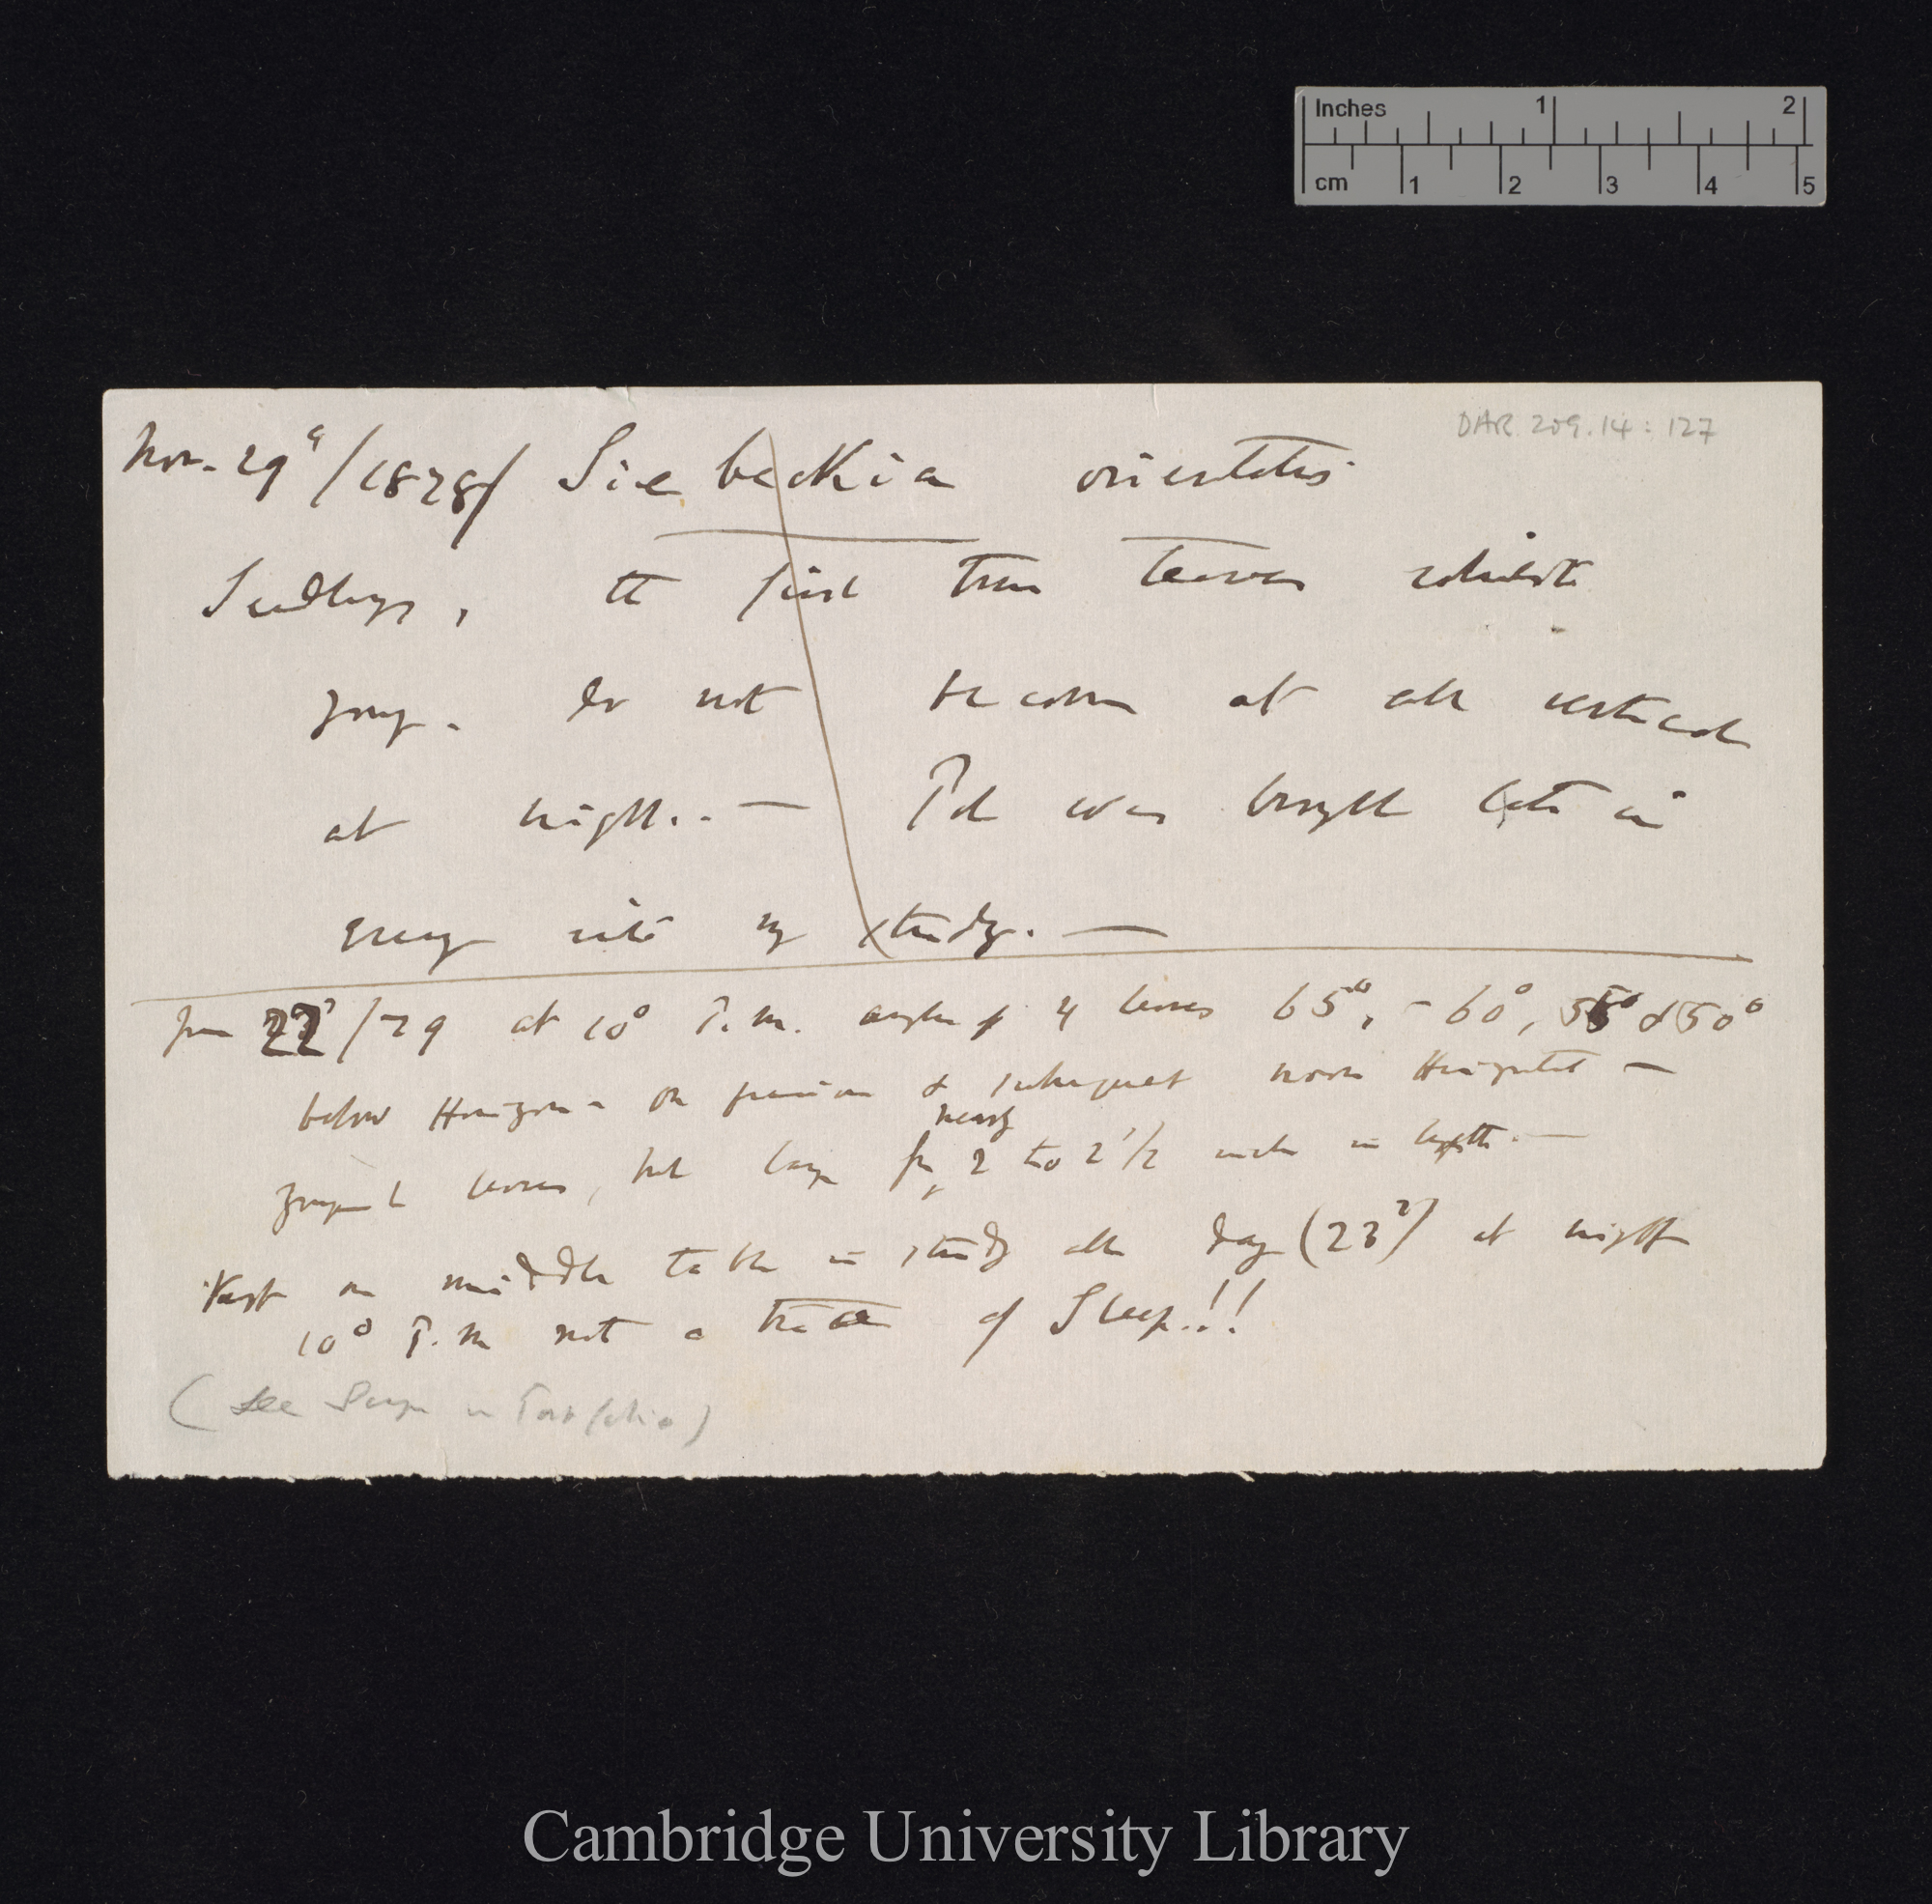 Inches 1 2
cm 1 2 3 4 5
DAR 209.14: 127
Nov. 29th/1878/ Siebeckia orientalis
Seedlings, the first true leaves whilst
young. do not become at all vertical
at night. — Pot was brought late in
evening into my study. —
June 22d/79 at 10° P.M. angles of 4 leaves 65°, - 60°, 55° & 50°
below Horizon - on previous & subsequent noon Horizontal —
leaves, but large for nearly 2 to 2 1/2 inches in length. —
Kept on middle table in study all day (23d) at night
10° P.M not a trace of Sleep.!!
(See in Portfolio)
Cambridge University Library